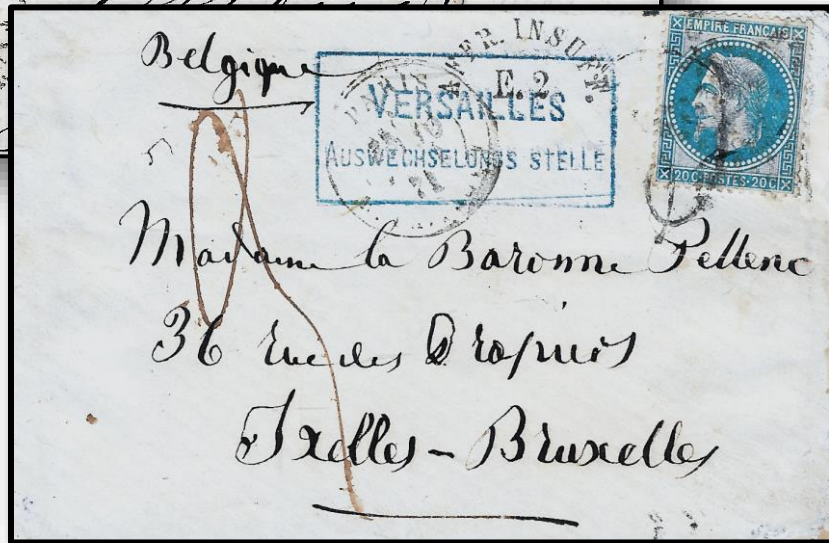 Belgique
AFFR. INSUFF.
E. 2
PARIS
71
VERSAILLES
AUSWECHSELUNGS STELLE
EMPIRE FRANÇAIS
20C·POSTES·20C
Madame la Baronne Pellenc
36 rue des
Ixelles – Bruxelles